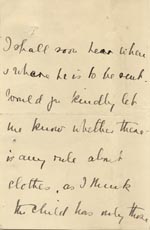 I shall soon hear when
& where he is to be sent.
Would you kindly let
me know whether there
is any rule about
clothes, as I think
the child has only those